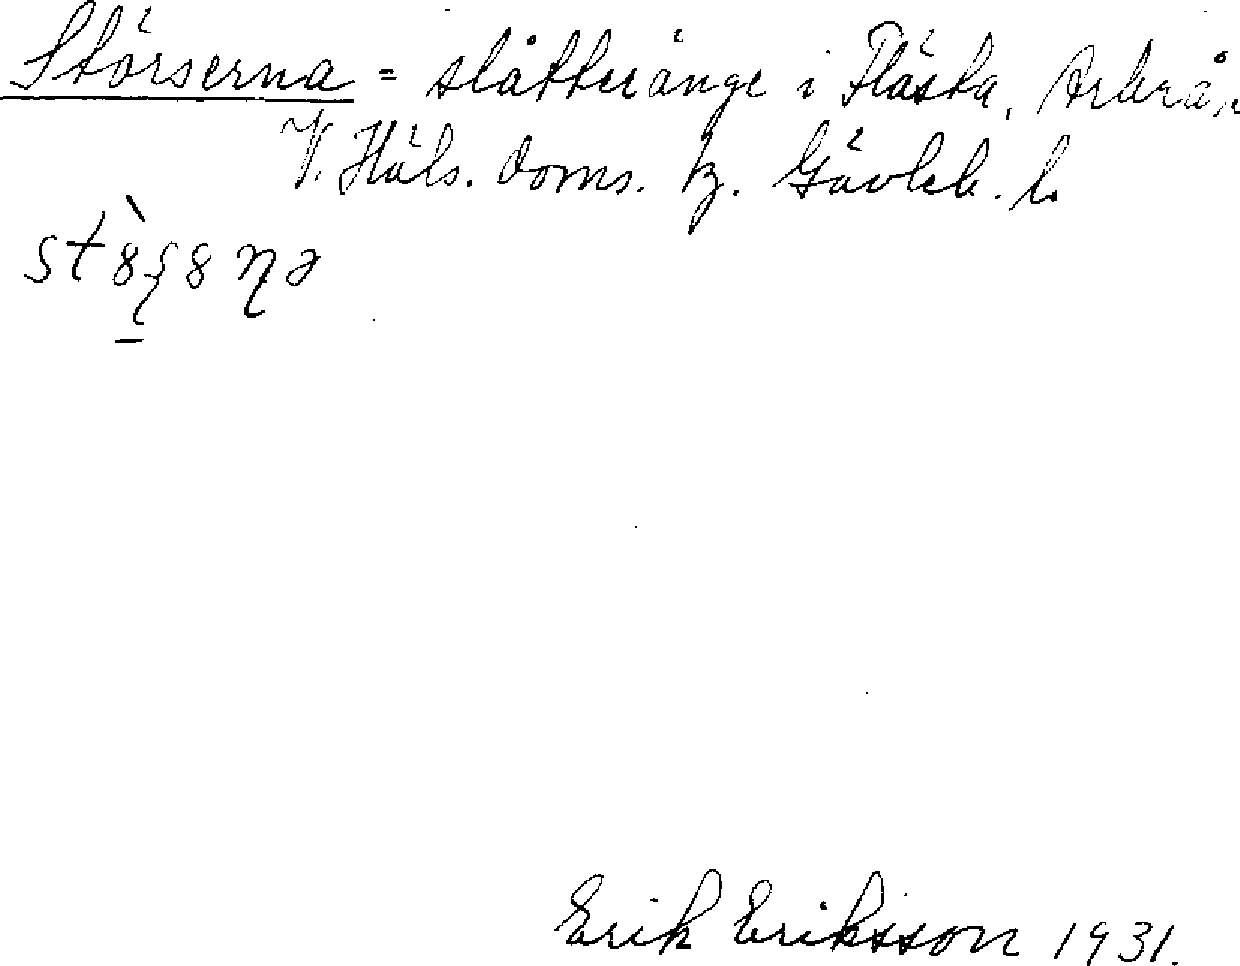 Störserna = slåtteränge i Flästa, Arbrå,
V. Häls. doms. hz. Gävleb. l.
Erik Eriksson 1931.